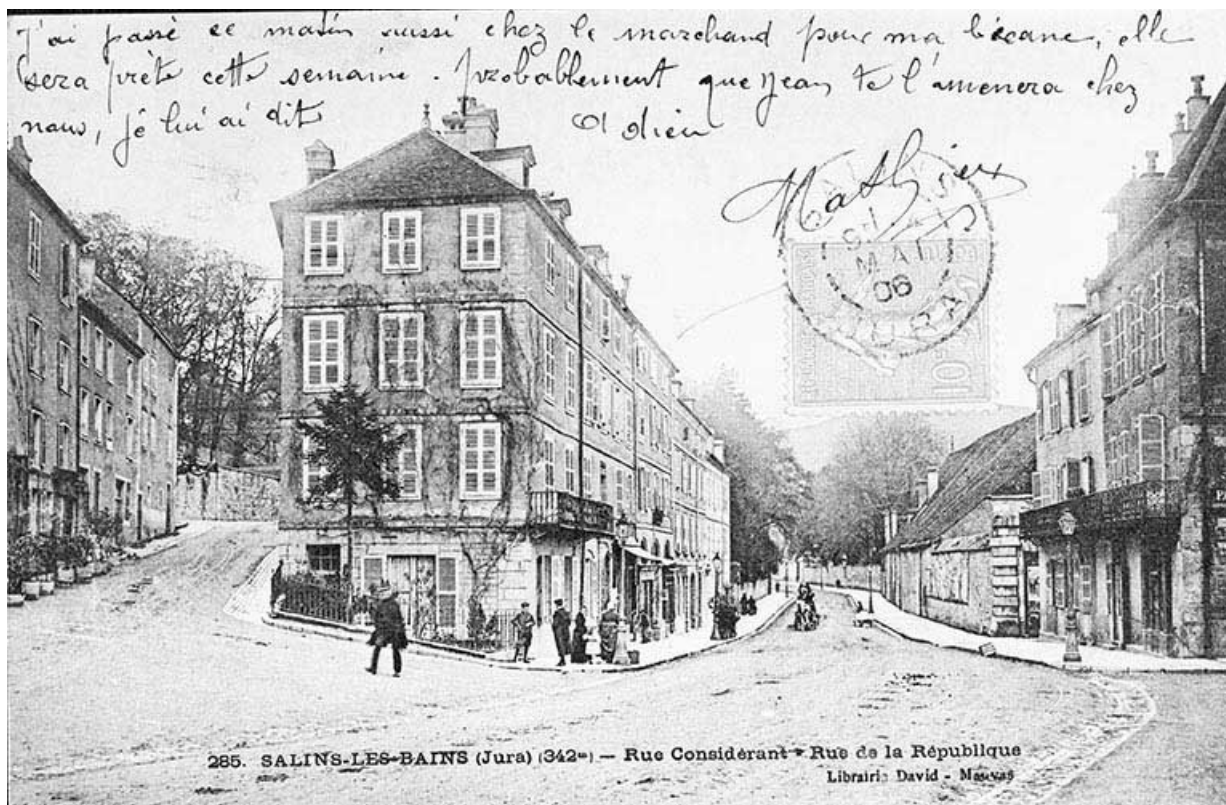 J'ai passé ce matin aussi chez le marchand pour ma bécane, elle
sera prête cette semaine. probablement que Jean te l'amenera chez
nous, je lui ai dit
Adieu
Mathieu
MAI
06
JURA
10
285. SALINS-LES-BAINS (Jura) (342m) — Rue Considérant - Rue de la République
Librairie David - Mauvas